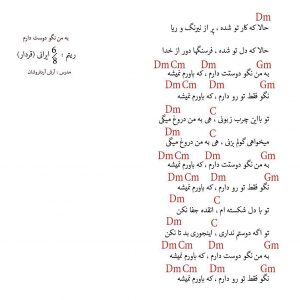 به من نگو دوست دارم
ریتم : 6/8 ایرانی (قردار)
مدرس : آرش آریافروشان
Dm
حالا که کار تو شده ، پر از نیرنگ و ریا
حالا که دل تو شده ، فرسنگها دور از خدا
Dm Cm Dm Gm
به من نگو دوستت دارم ، که باورم نمیشه
Dm Cm Dm Gm
نگو فقط تو رو دارم ، که باورم نمیشه
Dm C
تو بااین چرب زبونی ، هی به من دروغ میگی
میخواهی گولم بزنی ، هی به من دروغ میگی
Dm Cm Dm Gm
به من نگو دوستت دارم ، که باورم نمیشه
Dm Cm Dm Gm
نگو فقط تو رو دارم ، که باورم نمیشه
Dm C
تو با دل شکسته ام ، انقده جفا نکن
Dm C
تو اگه دوستم نداری ، اینجوری بد تا نکن
Dm Cm Dm Gm
به من نگو دوستت دارم ، که باورم نمیشه
Dm Cm Dm Gm
نگو فقط تو رو دارم ، که باورم نمیشه